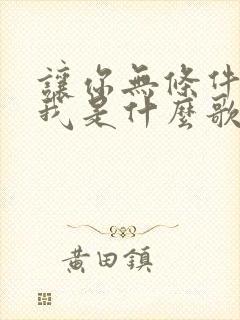 讓你無條件
我是什麼歌
黃田鎮